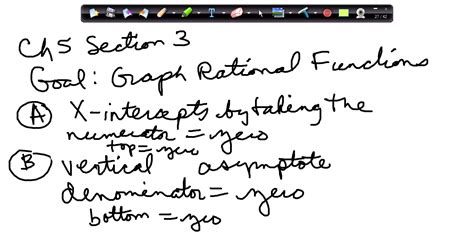 Ch 5 Section 3
Goal: Graph Rational Functions
A X-intercepts by taking the
numerator = zero
top = zero
B vertical asymptote
denominator = zero
bottom = zero